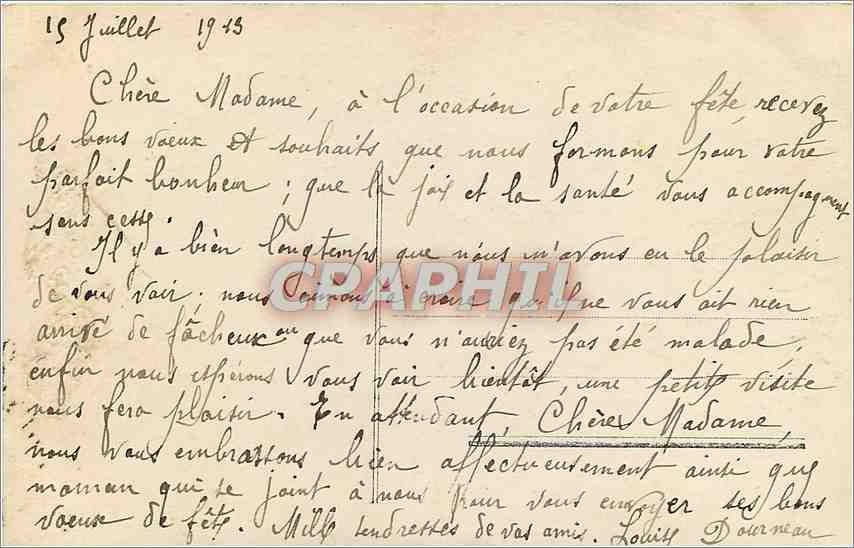 15 Juillet 1913
Chère Madame, à l'occasion de votre fête, recevez
les bons voeux et souhaits que nous formons pour votre
parfait bonheur ; que la joie et la santé vous accompagnent
sans cesse.
Il y a bien longtemps que nous n'avons eu le plaisir
de vous voir ; nous aimons à croire qu'il ne vous ait rien
arrivé de fâcheux ou que vous n'auriez pas été malade,
enfin nous espérons vous voir bientôt, une petite visite
nous fera plaisir. En attendant, Chère Madame,
nous vous embrassons bien affectueusement ainsi que
maman qui se joint à nous pour vous envoyer ses bons
voeux de fête. Mille tendresses de vos amis. Louise Dourneau
CPAPHIL